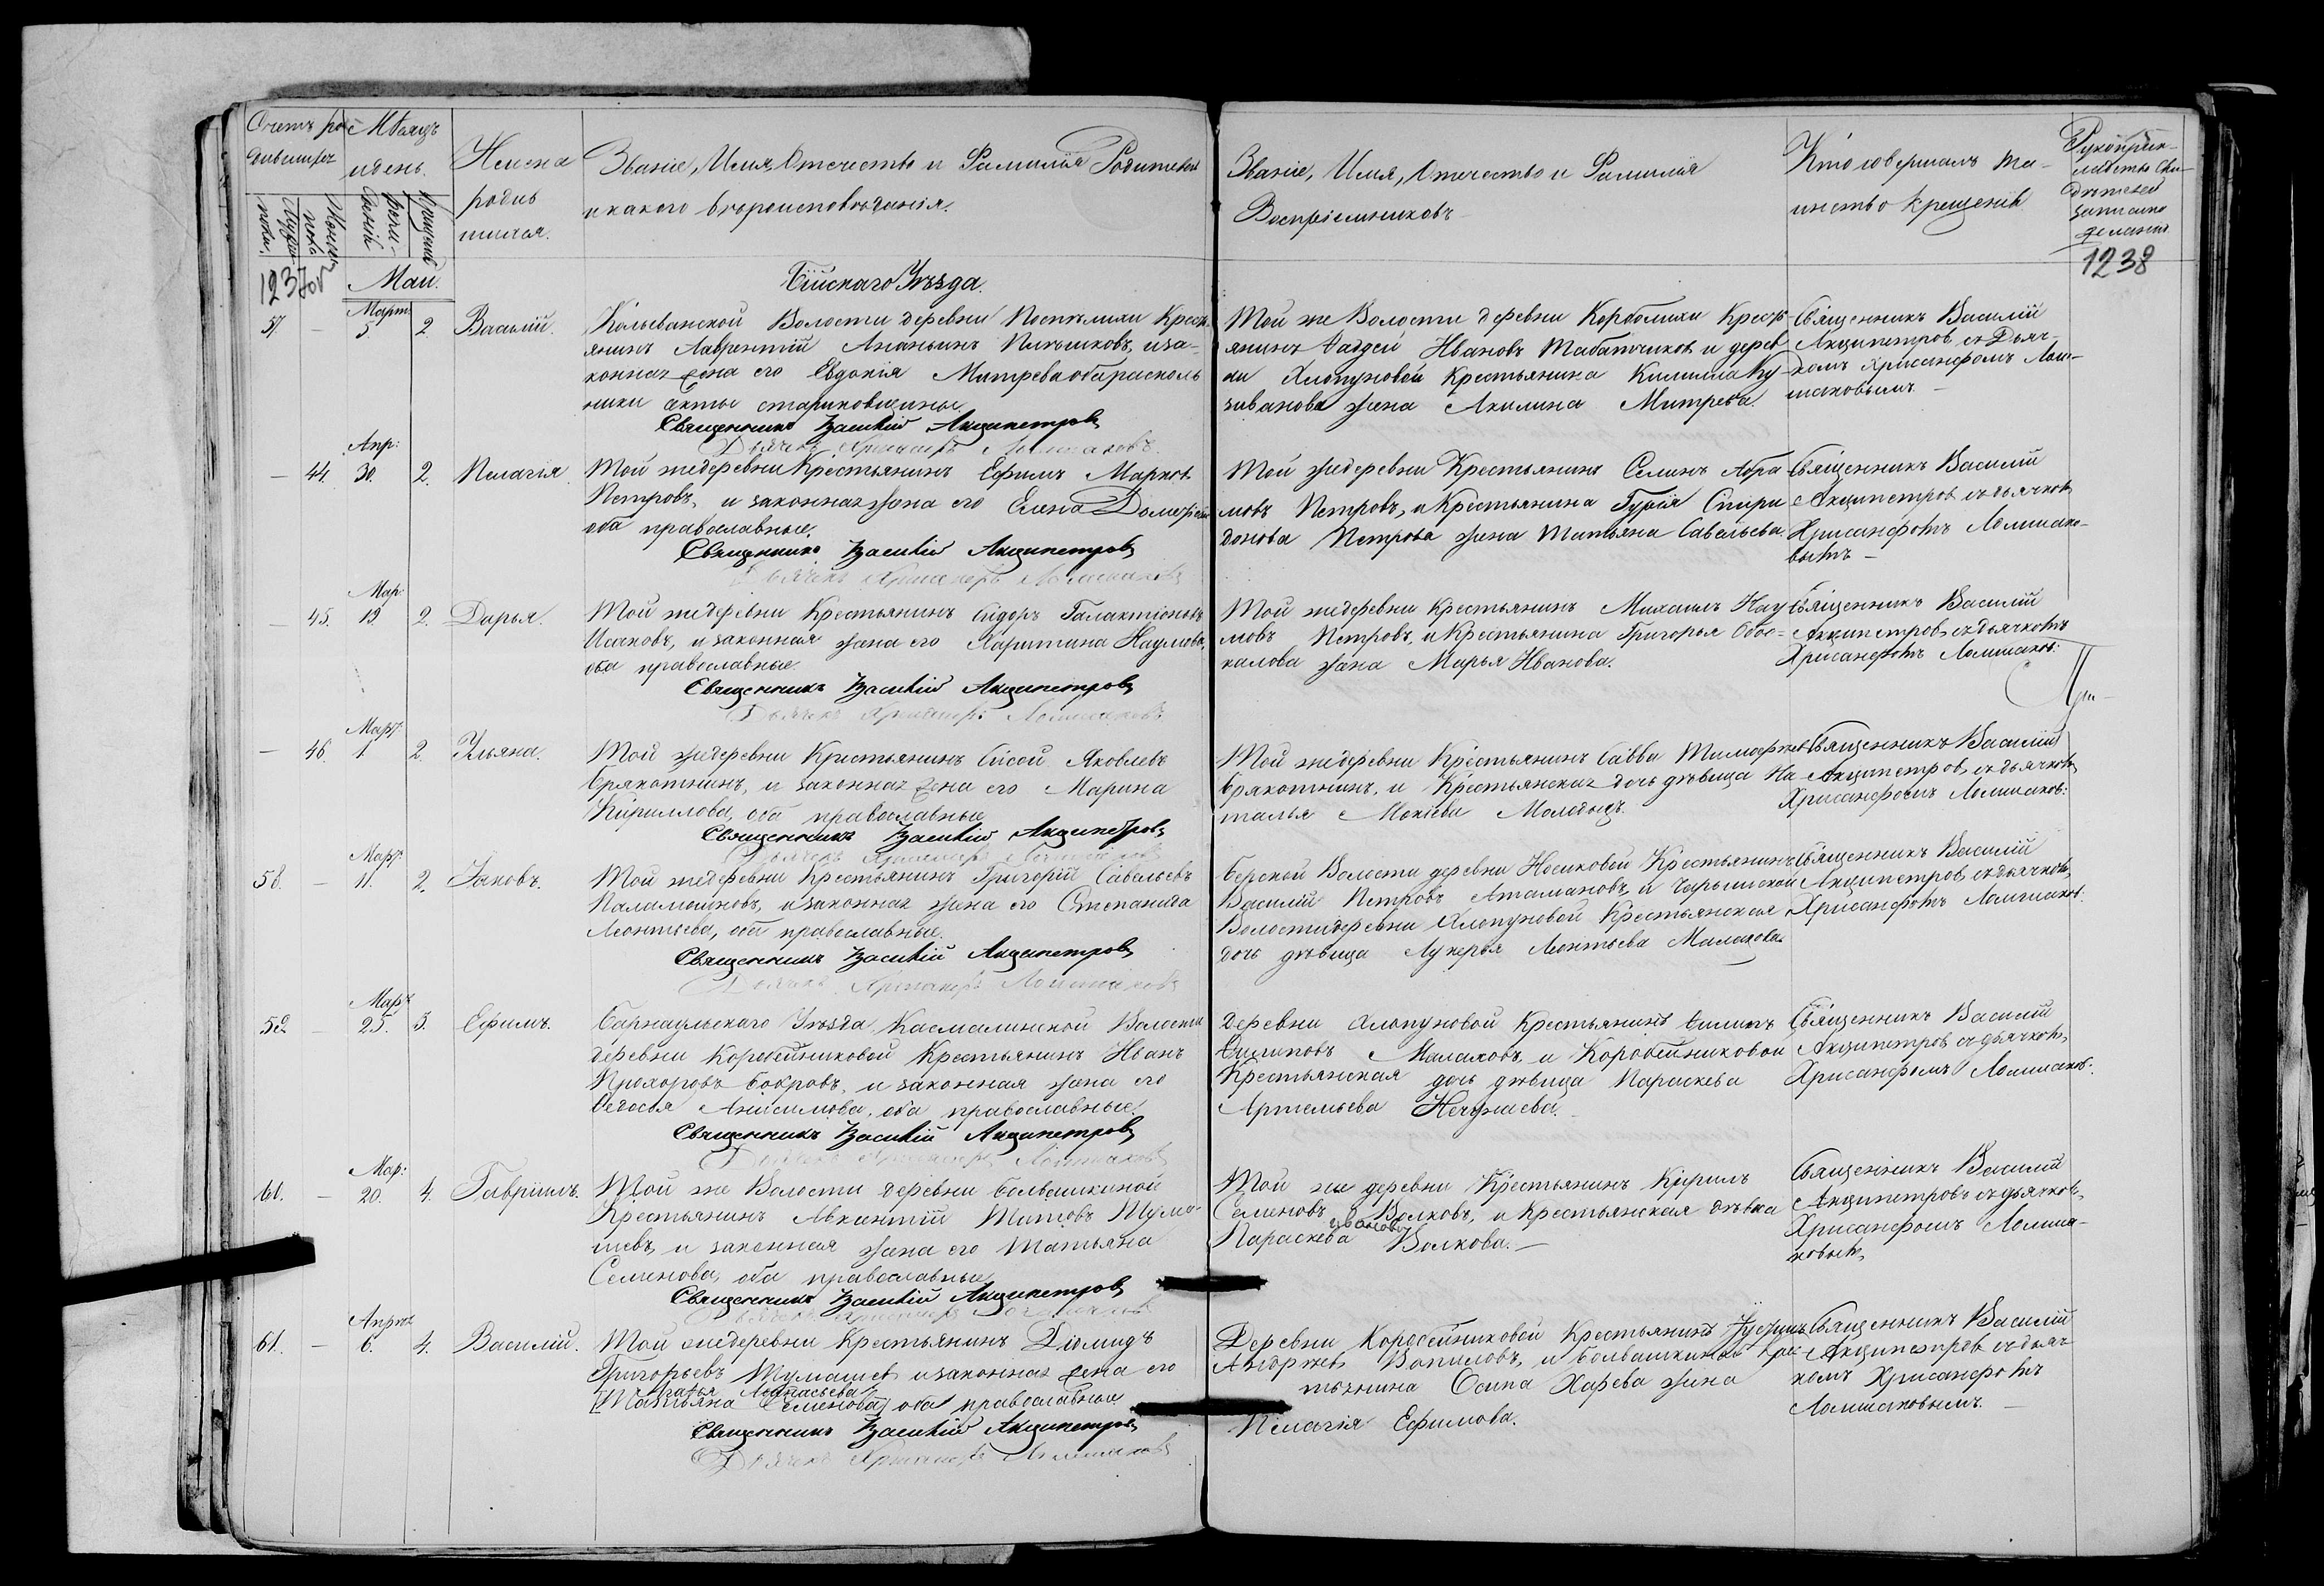 Счетъ ро-
дившихся
Мѣсяцъ
и день.
Имена
родив
шихся.
Званіе, Имя, Отечество и Фамилія Родителей
и какого вѣроисповѣданія.
Званіе, Имя, Отечество и Фамилія
Воспріемниковъ
Кто совершалъ та-
инство крещенія
Рукоприк-
ладство сви-
дѣтелей
записано
желанію
1237об
Май.
Бійскаго Уѣзда.
1238
57. — Март. 5. 2. Василій.
Колыванской Волости деревни Поспѣлихи Крест
янинъ Лаврентій Ананьинъ и за-
конная жена его Евдокія Митрева оба расколь
ники секты стариковщины.
Священникъ Василій Акципетровъ
Дьячекъ Хрисанфъ Ломшаковъ
Той же Волости деревни Корболихи Крест
янинъ Фаддей Ивановъ Табатчиковъ и дерев
ни Хлопуновой Крестьянина
жена Акилина Митрева.
Священникъ Василій
Акципетров съ Дьяч-
комъ Хрисанфомъ Лом-
шаковымъ. —
— 44. Апр: 30. 2. Пелагія.
Той же деревни Крестьянинъ Ефимъ Марков
Петровъ, и законная жена его Елена
оба православные.
Священникъ Василій Акципетровъ
Дьячекъ Хрисанфъ Ломшаковъ
Той же деревни Крестьянинъ Селинъ Абра
мовъ Петровъ, и Крестьянина Гурія Спири
донова Петрова жена Татьяна Савельева.
Священникъ Василій
Акципетров съ дьячком
Хрисанфомъ Ломшако-
вымъ —
— 45. Мар: 19. 2. Дарья.
Той же деревни Крестьянинъ Сидоръ Галактіоновъ
Исаковъ, и законная жена его Харитина Наумова,
оба православные.
Священникъ Василій Акципетровъ
Дьячекъ Хрисанфъ Ломшаковъ
Той же деревни Крестьянинъ Михаилъ Нау
мовъ Петровъ, и Крестьянина Григорья
жена Марья Иванова.
Священникъ Василій
Акципетровъ съ дьячкомъ
Хрисанфомъ Ломшаков:
— 46. Март. 1. 2. Ульяна.
Той же деревни Крестьянинъ Сисой Яковлевъ
Брякотнинъ, и законная жена его Марина
Кириллова, оба православные
Священникъ Василій Акципетровъ
Дьячекъ Хрисанфъ Ломшаковъ
Той же деревни Крестьянинъ Савва Тимофеев
Брякотнинъ, и Крестьянская дочь дѣвица На
талья Мокіева Молодыхъ.
Священникъ Василій
Акципетров, съ дьячком
Хрисанфомъ Ломшаков:
58. — Март. 11. 2. Іаковъ.
Той же деревни Крестьянинъ Григорій Савельевъ
Паламошновъ, и законная жена его Степанида
Леонтьева, оба православные.
Священникъ Василій Акципетровъ
Дьячекъ Хрисанфъ Ломшаковъ
Берской Волости деревни Носиковой Крестьянинъ
Василій Петровъ Атамановъ, и Чарышской
Волости деревни Хлопуновой Крестьянская
дочь дѣвица Лукерья Леонтьева Малахова.
Священникъ Василій
Акципетров, съ дьячком
Хрисанфомъ Ломшаков.
59. — Март 25. 3. Ефимъ.
Барнаульскаго Уѣзда Касмалинской Волости
деревни Коробейниковой Крестьянинъ Иванъ
Прохоровъ Бобровъ, и законная жена его
Федосья Анисимова, оба православные.
Священникъ Василій Акципетровъ
Дьячекъ Хрисанфъ Ломшаковъ
Деревни Хлопуновой Крестьянинъ Филипъ
Филиповъ Малахов, и Коробейниковой
Крестьянская дочь дѣвица Параскева
Артемьева Нечунаева.
Священникъ Василій
Акципетров съ дьячком
Хрисанфомъ Ломшаков.
61. — Мар: 20. 4. Гавріилъ.
Той же Волости деревни Болвашкиной
Крестьянинъ Авкентій Титовъ Тума-
шевъ, и законная жена его Татьяна
Семенова, оба православные
Священникъ Василій Акципетровъ
Дьячекъ Хрисанфъ Ломшаковъ
Той же деревни Крестьянинъ Кирилъ
Семеновъ Волковъ, и Крестьянская дѣвка
Иванова
Параскева Волкова. —
Священникъ Василій
Акципетровъ съ дьячком
Хрисанфомъ Ломша-
ковым
61. — Апрѣл 6. 4. Василій.
Той же деревни Крестьянинъ Діомидъ
Григорьевъ Тумашев и законная жена его
Афанасьева
Татьяна Семенова, оба православные
Священникъ Василій Акципетровъ
Дьячекъ Хрисанфъ Ломшаковъ
Деревни Коробейниковой Крестьянинъ
Вопиловъ, и Болвашкиной крес
тьянина Осипа Харева жена
Пелагія Ефимова.
Священникъ Василій
Акципетров съ дьяч
комъ Хрисанфомъ
Ломшаковымъ. —